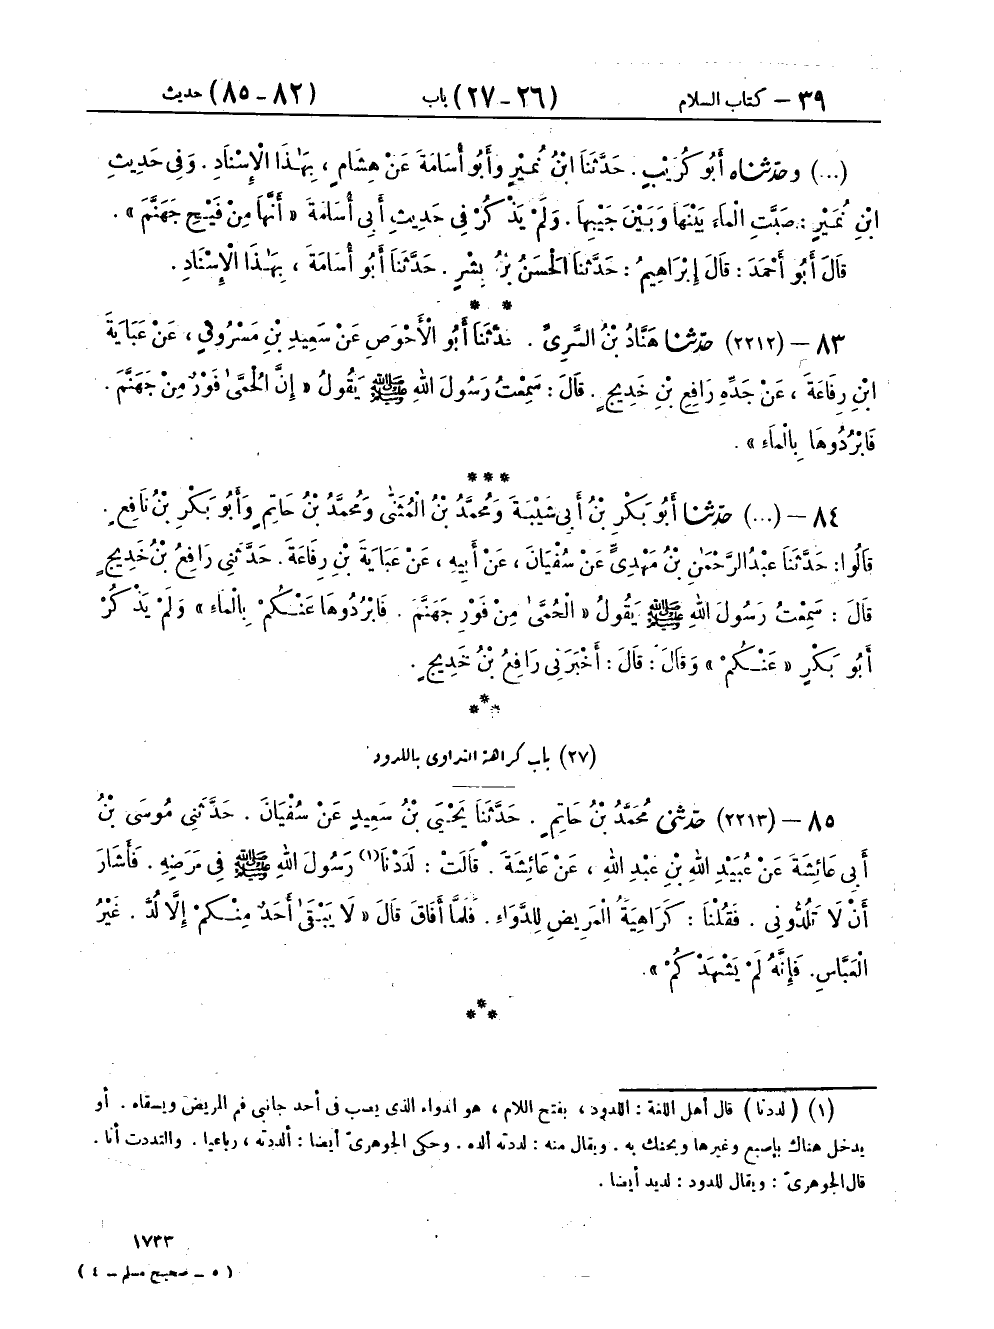 ٣٩ – كتاب السلام (٢٦ - ٢٧) باب (٨٢ - ٨٥) حديث
(...) وحدثناه أَبُو كُرَيْبٍ . حَدَّثَنَا ابْنُ نُمَيْرٍ وَأَبُو أُسَامَةَ عَنْ هِشَامٍ ، بِهَٰذَا الْإِسْنَادِ . وَفِي حَدِيثِ
ابْنِ نُمَيْرٍ : صَبَّتِ الْمَاءَ بَيْنَهَا وَبَيْنَ جَيْبِهَا . وَلَمْ يَذْكُرْ فِي حَدِيثِ أَبِي أُسَامَةَ « أَنَّهَا مِنْ فَيْحِ جَهَنَّمَ » .
قَالَ أَبُو أَحْمَدَ : قَالَ إِبْرَاهِيمُ : حَدَّثَنَا الْحَسَنُ بْنُ بِشْرٍ . حَدَّثَنَا أَبُو أُسَامَةَ ، بِهَٰذَا الْإِسْنَادِ .
* *
٨٣ – (٢٢١٢) حدثنا هَنَّادُ بْنُ السَّرِىِّ . حَدَّثَنَا أَبُو الْأَحْوَصِ عَنْ سَعِيدِ بْنِ مَسْرُوقٍ ، عَنْ عَبَايَةَ
ابْنِ رِفَاعَةَ ، عَنْ جَدِّهِ رَافِعِ بْنِ خَدِيجٍ . قَالَ : سَمِعْتُ رَسُولَ اللهِ ﷺ يَقُولُ « إِنَّ الْحُمَّىٰ فَوْرٌ مِنْ جَهَنَّمَ .
فَابْرُدُوهَا بِالْمَاءِ » .
* * *
٨٤ – (...) حدثنا أَبُو بَكْرِ بْنُ أَبِي شَيْبَةَ وَمُحَمَّدُ بْنُ الْمُثَنَّىٰ وَمُحَمَّدُ بْنُ حَاتِمٍ وَأَبُو بَكْرِ بْنُ نَافِعٍ .
قَالُوا : حَدَّثَنَا عَبْدُ الرَّحْمَٰنِ بْنُ مَهْدِىٍّ عَنْ سُفْيَانَ ، عَنْ أَبِيهِ ، عَنْ عَبَايَةَ بْنِ رِفَاعَةَ . حَدَّثَنِي رَافِعُ بْنُ خَدِيجٍ
قَالَ : سَمِعْتُ رَسُولَ اللهِ ﷺ يَقُولُ « الْحُمَّىٰ مِنْ فَوْرِ جَهَنَّمَ . فَابْرُدُوهَا عَنْكُمْ بِالْمَاءِ » وَلَمْ يَذْكُرْ
أَبُو بَكْرٍ « عَنْكُمْ » وَقَالَ : قَالَ : أَخْبَرَنِي رَافِعُ بْنُ خَدِيجٍ .
* * *
(٢٧) باب كراهة التداوى باللدود
٨٥ – (٢٢١٣) حدثنى مُحَمَّدُ بْنُ حَاتِمٍ . حَدَّثَنَا يَحْيَىٰ بْنُ سَعِيدٍ عَنْ سُفْيَانَ . حَدَّثَنِي مُوسَىٰ بْنُ
أَبِي عَائِشَةَ عَنْ عُبَيْدِ اللهِ بْنِ عَبْدِ اللهِ ، عَنْ عَائِشَةَ . قَالَتْ : لَدَدْنَا(١) رَسُولَ اللهِ ﷺ فِي مَرَضِهِ . فَأَشَارَ
أَنْ لَا تَلُدُّونِي . فَقُلْنَا : كَرَاهِيَةُ الْمَرِيضِ لِلدَّوَاءِ . فَلَمَّا أَفَاقَ قَالَ « لَا يَبْقَىٰ أَحَدٌ مِنْكُمْ إِلَّا لُدَّ . غَيْرُ
الْعَبَّاسِ . فَإِنَّهُ لَمْ يَشْهَدْكُمْ » .
* * *
(١) (لددنا) قال أهل اللغة : اللدود ، بفتح اللام ، هو الدواء الذى يصب فى أحد جانبى فم المريض ويسقاه . أو
يدخل هناك بإصبع وغيرها ويحنك به . ويقال منه : لددته ألده . وحكى الجوهرىّ أيضا : ألددته ، رباعيا . والتددت أنا .
قال الجوهرىّ : ويقال للدود : لديد أيضا .
١٧٣٣
( ٥ – صحيح مسلم – ٤ )